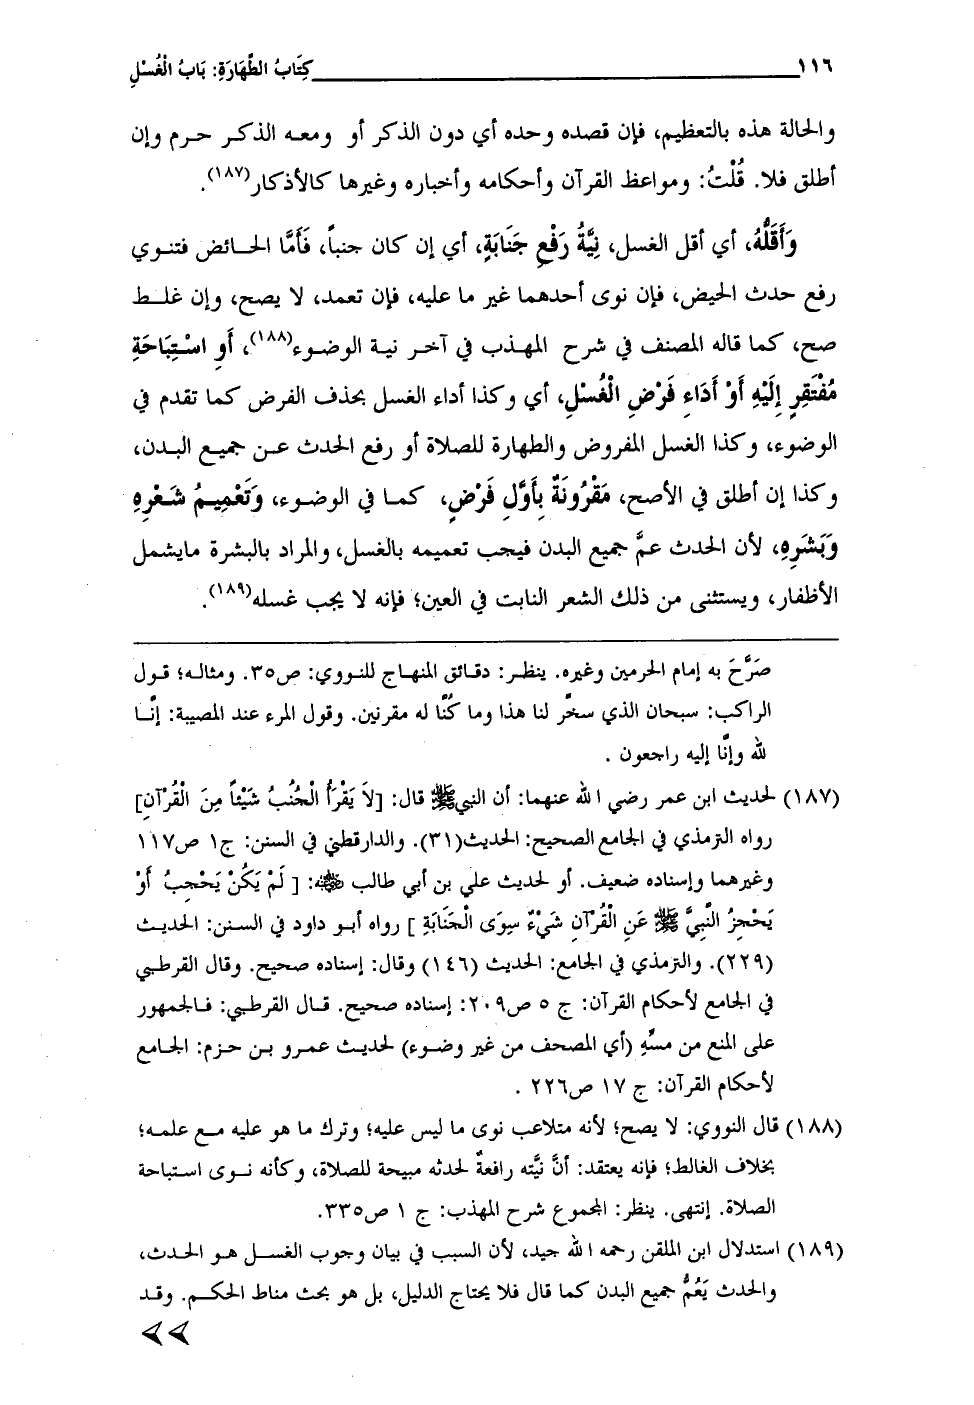 ١١٦ كِتَابُ الطَّهَارَةِ: بَابُ الْغُسْلِ
والحالة هذه بالتعظيم، فإن قصده وحده أي دون الذكر أو ومعه الذكر حرم وإن
أطلق فلا. قُلْتُ: ومواعظ القرآن وأحكامه وأخباره وغيرها كالأذكار(١٨٧).
وَأَقَلُّهُ، أي أقل الغسل، نِيَّةُ رَفْعِ جَنَابَةٍ، أي إن كان جنباً، فَأَمَّا الحائض فتنوي
رفع حدث الحيض، فإن نوى أحدهما غير ما عليه، فإن تعمد، لا يصح، وإن غلط
صح، كما قاله المصنف في شرح المهذب في آخر نية الوضوء(١٨٨)، أَوِ اسْتِبَاحَةِ
مُفْتَقِرٍ إِلَيْهِ أَوْ أَدَاءِ فَرْضِ الْغُسْلِ، أي وكذا أداء الغسل بحذف الفرض كما تقدم في
الوضوء، وكذا الغسل المفروض والطهارة للصلاة أو رفع الحدث عن جميع البدن،
وكذا إن أطلق في الأصح، مَقْرُونَةٌ بِأَوَّلِ فَرْضٍ، كما في الوضوء، وَتَعْمِيمُ شَعْرِهِ
وَبَشَرِهِ، لأن الحدث عمَّ جميع البدن فيجب تعميمه بالغسل، والمراد بالبشرة مايشمل
الأظفار، ويستثنى من ذلك الشعر النابت في العين؛ فإنه لا يجب غسله(١٨٩).
صَرَّحَ به إمام الحرمين وغيره. ينظر: دقائق المنهاج للنووي: ص٣٥. ومثاله؛ قول
الراكب: سبحان الذي سخَّر لنا هذا وما كُنَّا له مقرنين. وقول المرء عند المصيبة: إنَّا
لله وإنَّا إليه راجعون .
(١٨٧) لحديث ابن عمر رضي الله عنهما: أن النبيﷺ قال: [لاَ يَقْرَأُ الْجُنُبُ شَيْئاً مِنَ الْقُرْآنِ]
رواه الترمذي في الجامع الصحيح: الحديث(٣١). والدارقطني في السنن: ج١ ص١١٧
وغيرهما وإسناده ضعيف. أو لحديث علي بن أبي طالب ﵁: [ لَمْ يَكُنْ يَحْجِبُ أَوْ
يَحْجِزُ النَّبِيَّ ﷺ عَنِ الْقُرْآنِ شَيْءٌ سِوَى الْجَنَابَةِ ] رواه أبو داود في السنن: الحديث
(٢٢٩). والترمذي في الجامع: الحديث (١٤٦) وقال: إسناده صحيح. وقال القرطبي
في الجامع لأحكام القرآن: ج ٥ ص٢٠٩: إسناده صحيح. قال القرطبي: فالجمهور
على المنع من مسِّهِ (أي المصحف من غير وضوء) لحديث عمرو بن حزم: الجامع
لأحكام القرآن: ج ١٧ ص٢٢٦ .
(١٨٨) قال النووي: لا يصح؛ لأنه متلاعب نوى ما ليس عليه؛ وترك ما هو عليه مع علمه؛
بخلاف الغالط؛ فإنه يعتقد: أنَّ نيَّته رافعةٌ لحدثه مبيحة للصلاة، وكأنه نوى استباحة
الصلاة. إنتهى. ينظر: المجموع شرح المهذب: ج ١ ص٣٣٥.
(١٨٩) استدلال ابن الملقن رحمه الله جيد، لأن السبب في بيان وجوب الغسل هو الحدث،
والحدث يَعُمُّ جميع البدن كما قال فلا يحتاج الدليل، بل هو بحث مناط الحكم. وقد